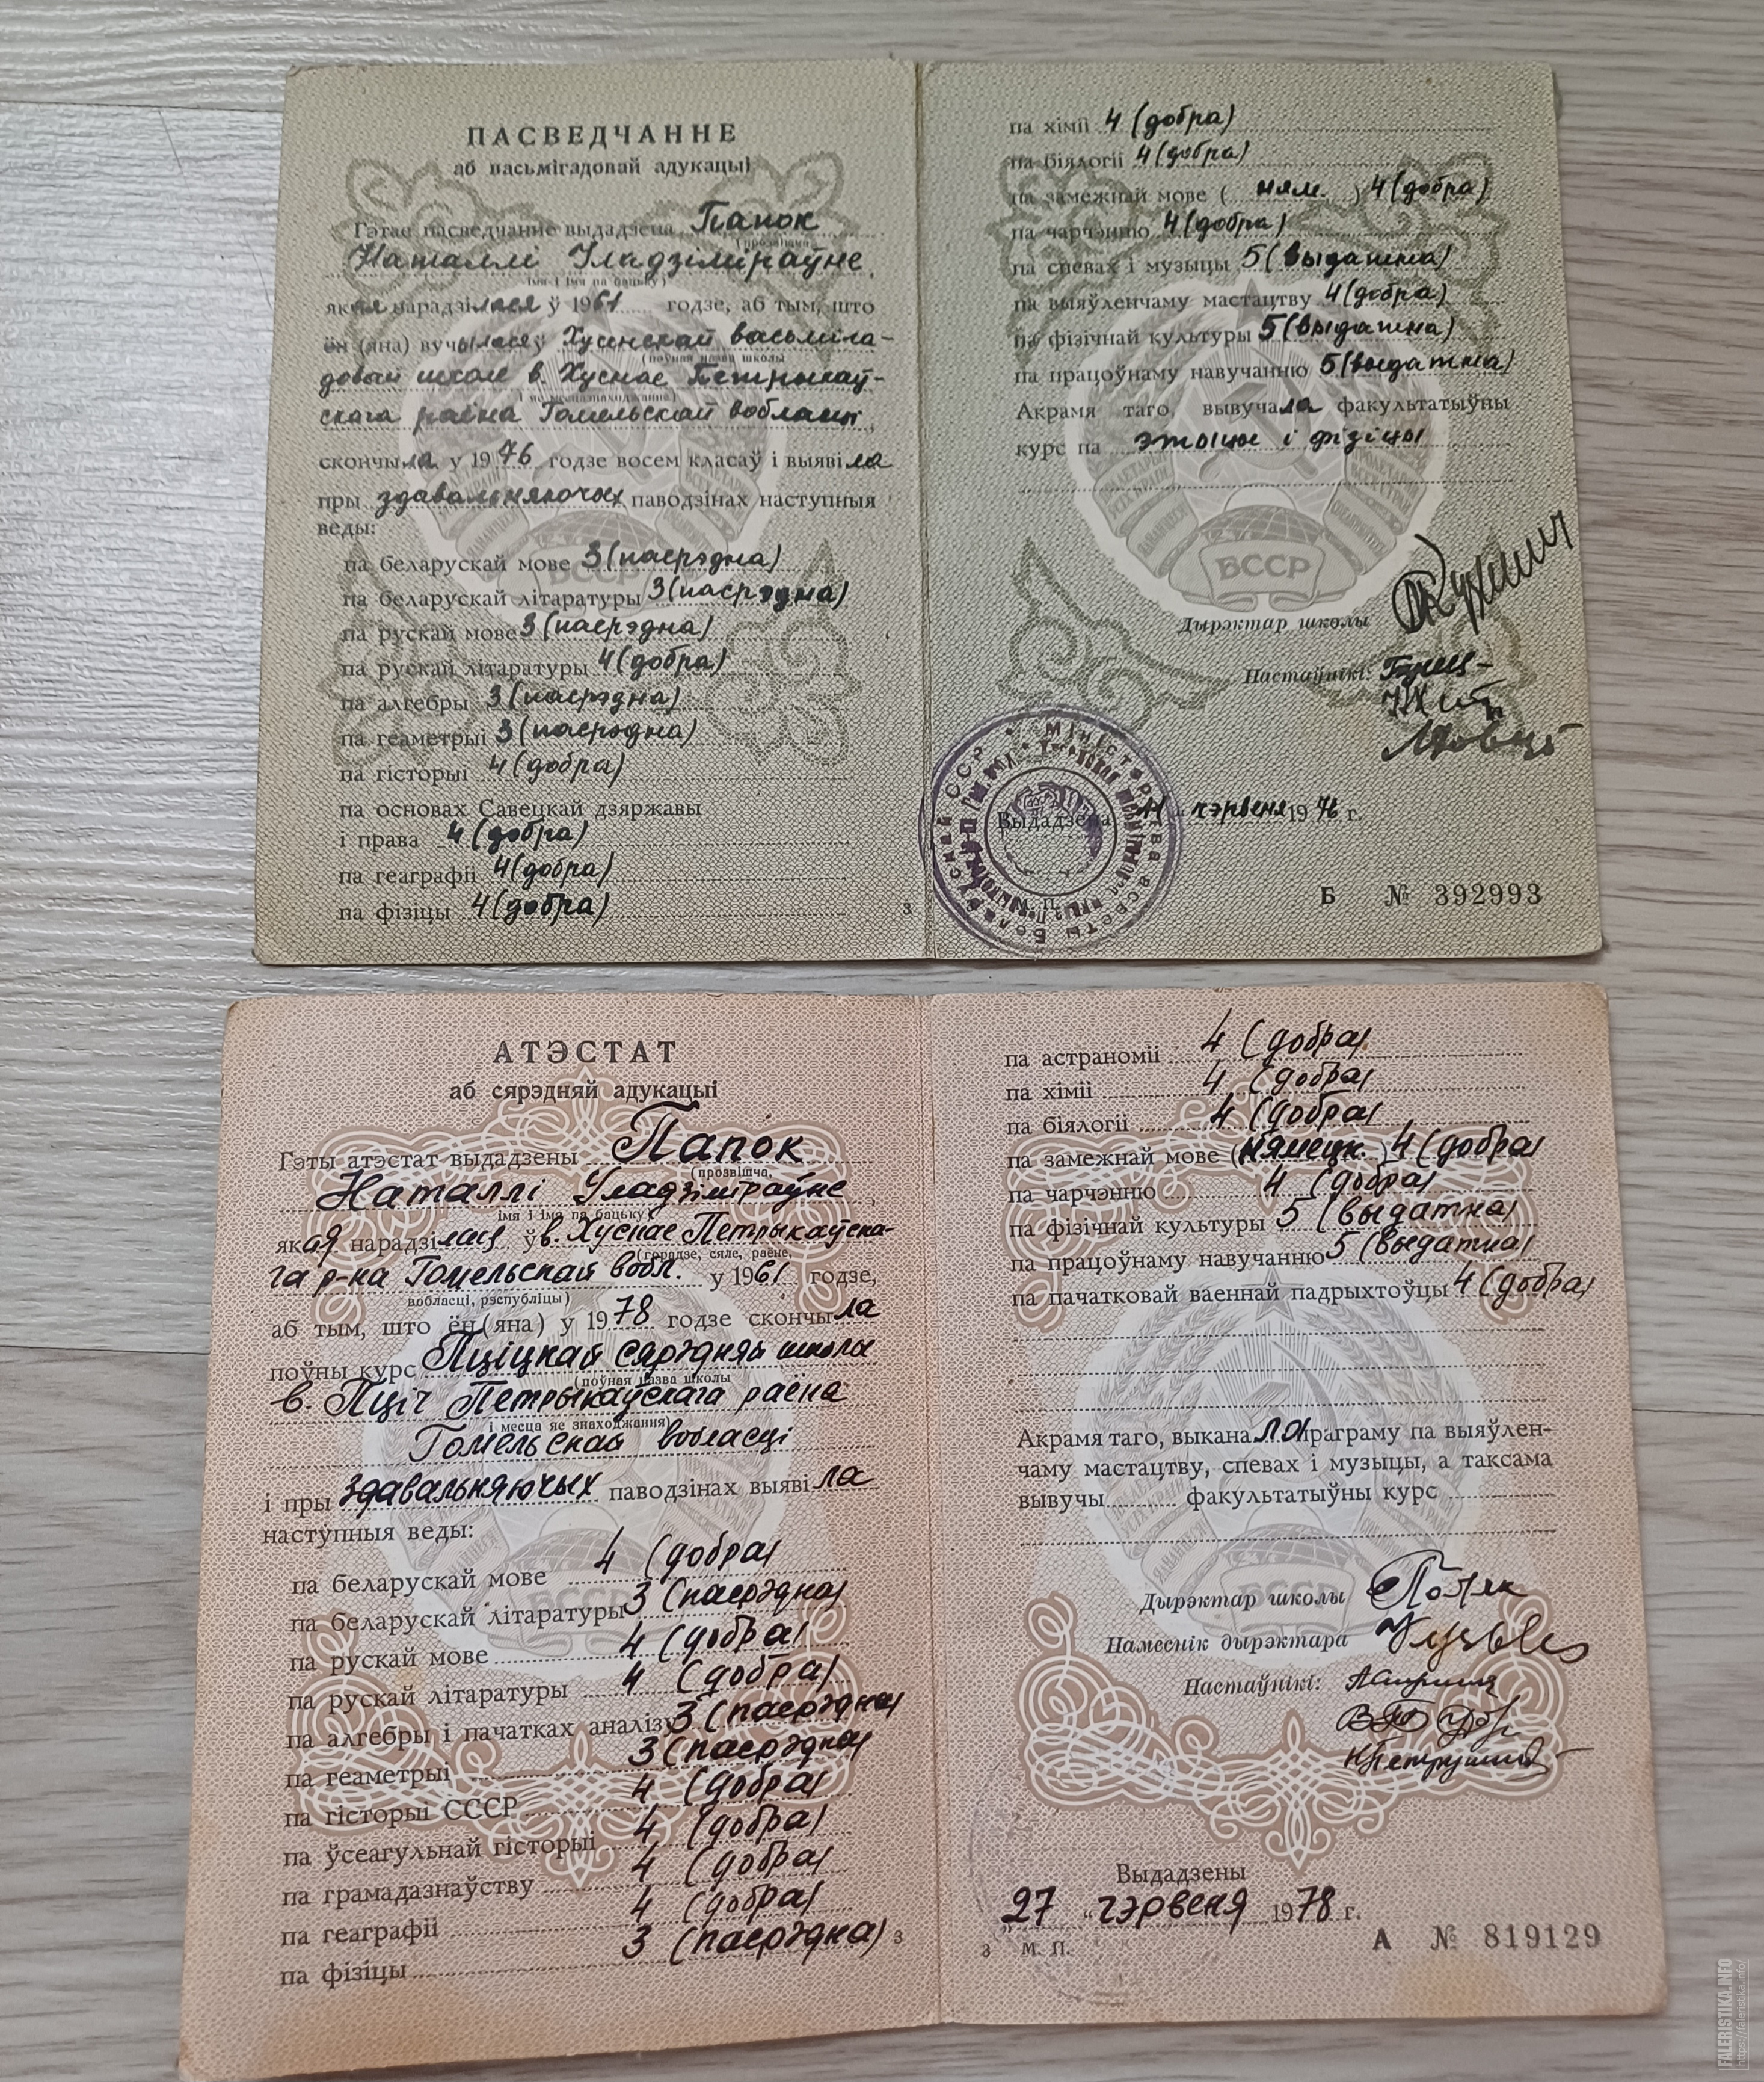 ПАСВЕДЧАННЕ
аб васьмігадовай адукацыі
Гэтае пасведчанне выдадзена Папок
(прозвішча,
Наталлі Уладзіміраўне,
імя і імя па бацьку)
якая нарадзілася ў 1961 годзе, аб тым, што
ён (яна) вучылася ў Хусенскай васьміга-
(поўная назва школы
довай школе в. Хуснае Петрыкаў-
і яе месцазнаходжанне)
скага раёна Гомельскай вобласці,
скончыла у 1976 годзе восем класаў і выявіла
пры здавальняючых паводзінах наступныя
веды:
па беларускай мове 3 (пасрэдна)
па беларускай літаратуры 3 (пасрэдна)
па рускай мове 3 (пасрэдна)
па рускай літаратуры 4 (добра)
па алгебры 3 (пасрэдна)
па геаметрыі 3 (пасрэдна)
па гісторыі 4 (добра)
па основах Савецкай дзяржавы
і права 4 (добра)
па геаграфіі 4 (добра)
па фізіцы 4 (добра)
3
па хіміі 4 (добра)
па біялогіі 4 (добра)
па замежнай мове ( ням. ) 4 (добра)
па чарчэнню 4 (добра)
па спевах і музыцы 5 (выдатна)
па выяўленчаму мастацтву 4 (добра)
па фізічнай культуры 5 (выдатна)
па працоўнаму навучанню 5 (выдатна)
Акрамя таго, вывучала факультатыўны
курс па этыцы і фізіцы
БССР
Дырэктар школы
Настаўнікі:
Выдадзена 11 чэрвеня 1976 г.
М. П.
Б № 392993
АТЭСТАТ
аб сярэдняй адукацыі
Гэты атэстат выдадзены Папок
(прозвішча,
Наталлі Уладзіміраўне,
імя і імя па бацьку)
якая нарадзілася ў в. Хуснае Петрыкаўска-
(горадзе, сяле, раёне,
га р-на Гомельскай вобл. у 1961 годзе,
вобласці, рэспубліцы)
аб тым, што ён (яна) у 1978 годзе скончыла
поўны курс Пціцкай сярэдняй школы
(поўная назва школы
в. Пціч Петрыкаўскага раёна
і месца яе знаходжання)
Гомельскай вобласці
і пры здавальняючых паводзінах выявіла
наступныя веды:
па беларускай мове 4 (добра)
па беларускай літаратуры 3 (пасрэдна)
па рускай мове 4 (добра)
па рускай літаратуры 4 (добра)
па алгебры і пачатках аналізу 3 (пасрэдна)
па геаметрыі 3 (пасрэдна)
па гісторыі СССР 4 (добра)
па ўсеагульнай гісторыі 4 (добра)
па грамадазнаўству 4 (добра)
па геаграфіі 4 (добра)
па фізіцы 3 (пасрэдна)
3
па астраноміі 4 (добра)
па хіміі 4 (добра)
па біялогіі 4 (добра)
па замежнай мове (нямецк.) 4 (добра)
па чарчэнню 4 (добра)
па фізічнай культуры 5 (выдатна)
па працоўнаму навучанню 5 (выдатна)
па пачатковай ваеннай падрыхтоўцы 4 (добра)
Акрамя таго, выканала праграму па выяўлен-
чаму мастацтву, спевах і музыцы, а таксама
вывучы факультатыўны курс
БССР
Дырэктар школы
Намеснік дырэктара
Настаўнікі:
Выдадзены
"27" чэрвеня 1978 г.
3 М. П.
А № 819129
FALERISTIKA.INFO
https://faleristika.info/